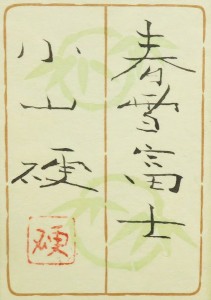 春雪富士
小山硬
硬